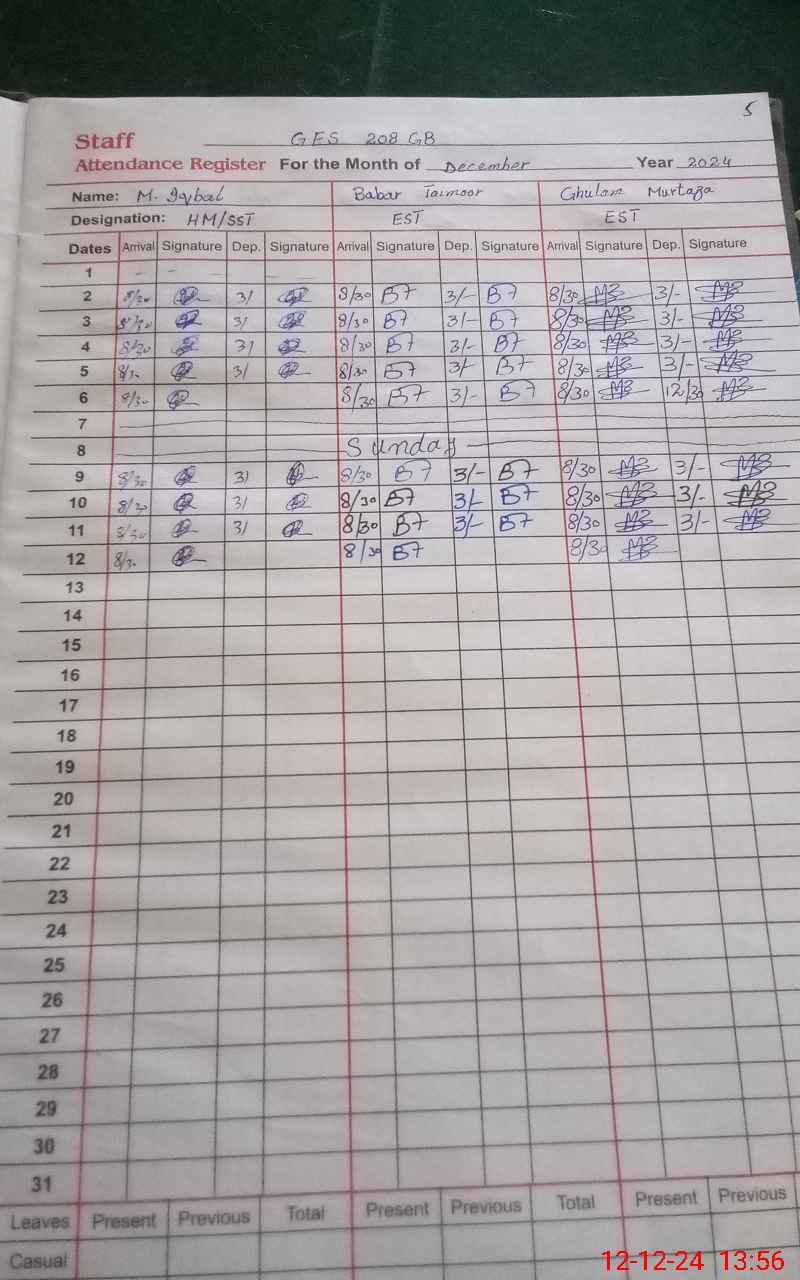 5
Staff GES 208 GB
Attendance Register For the Month of December Year 2024
Name: M. Iqbal Babar Taimoor Ghulam Murtaza
Designation: HM/SST EST EST
Dates Arrival Signature Dep. Signature Arrival Signature Dep. Signature Arrival Signature Dep. Signature
1 - -
2 8/30 3/ 8/30 BT 3/- BT 8/30 3/-
3 8/30 3/ 8/30 BT 3/- BT 8/30 3/-
4 8/30 3/ 8/30 BT 3/- BT 8/30 3/-
5 8/30 3/ 8/30 BT 3/- BT 8/30 3/-
6 8/30 8/30 BT 3/- BT 8/30 12/30
7
8 Sunday
9 8/30 3/ 8/30 BT 3/- BT 8/30 3/-
10 8/30 3/ 8/30 BT 3/- BT 8/30 3/-
11 8/30 3/ 8/30 BT 3/- BT 8/30 3/-
12 8/30 8/30 BT 8/30
13
14
15
16
17
18
19
20
21
22
23
24
25
26
27
28
29
30
31
Leaves Present Previous Total Present Previous Total Present Previous
Casual
12-12-24 13:56